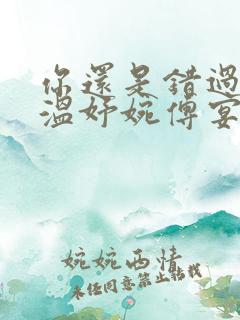 你還是錯過
溫妤婉傅宴
婉婉西情
未經同意禁止轉載